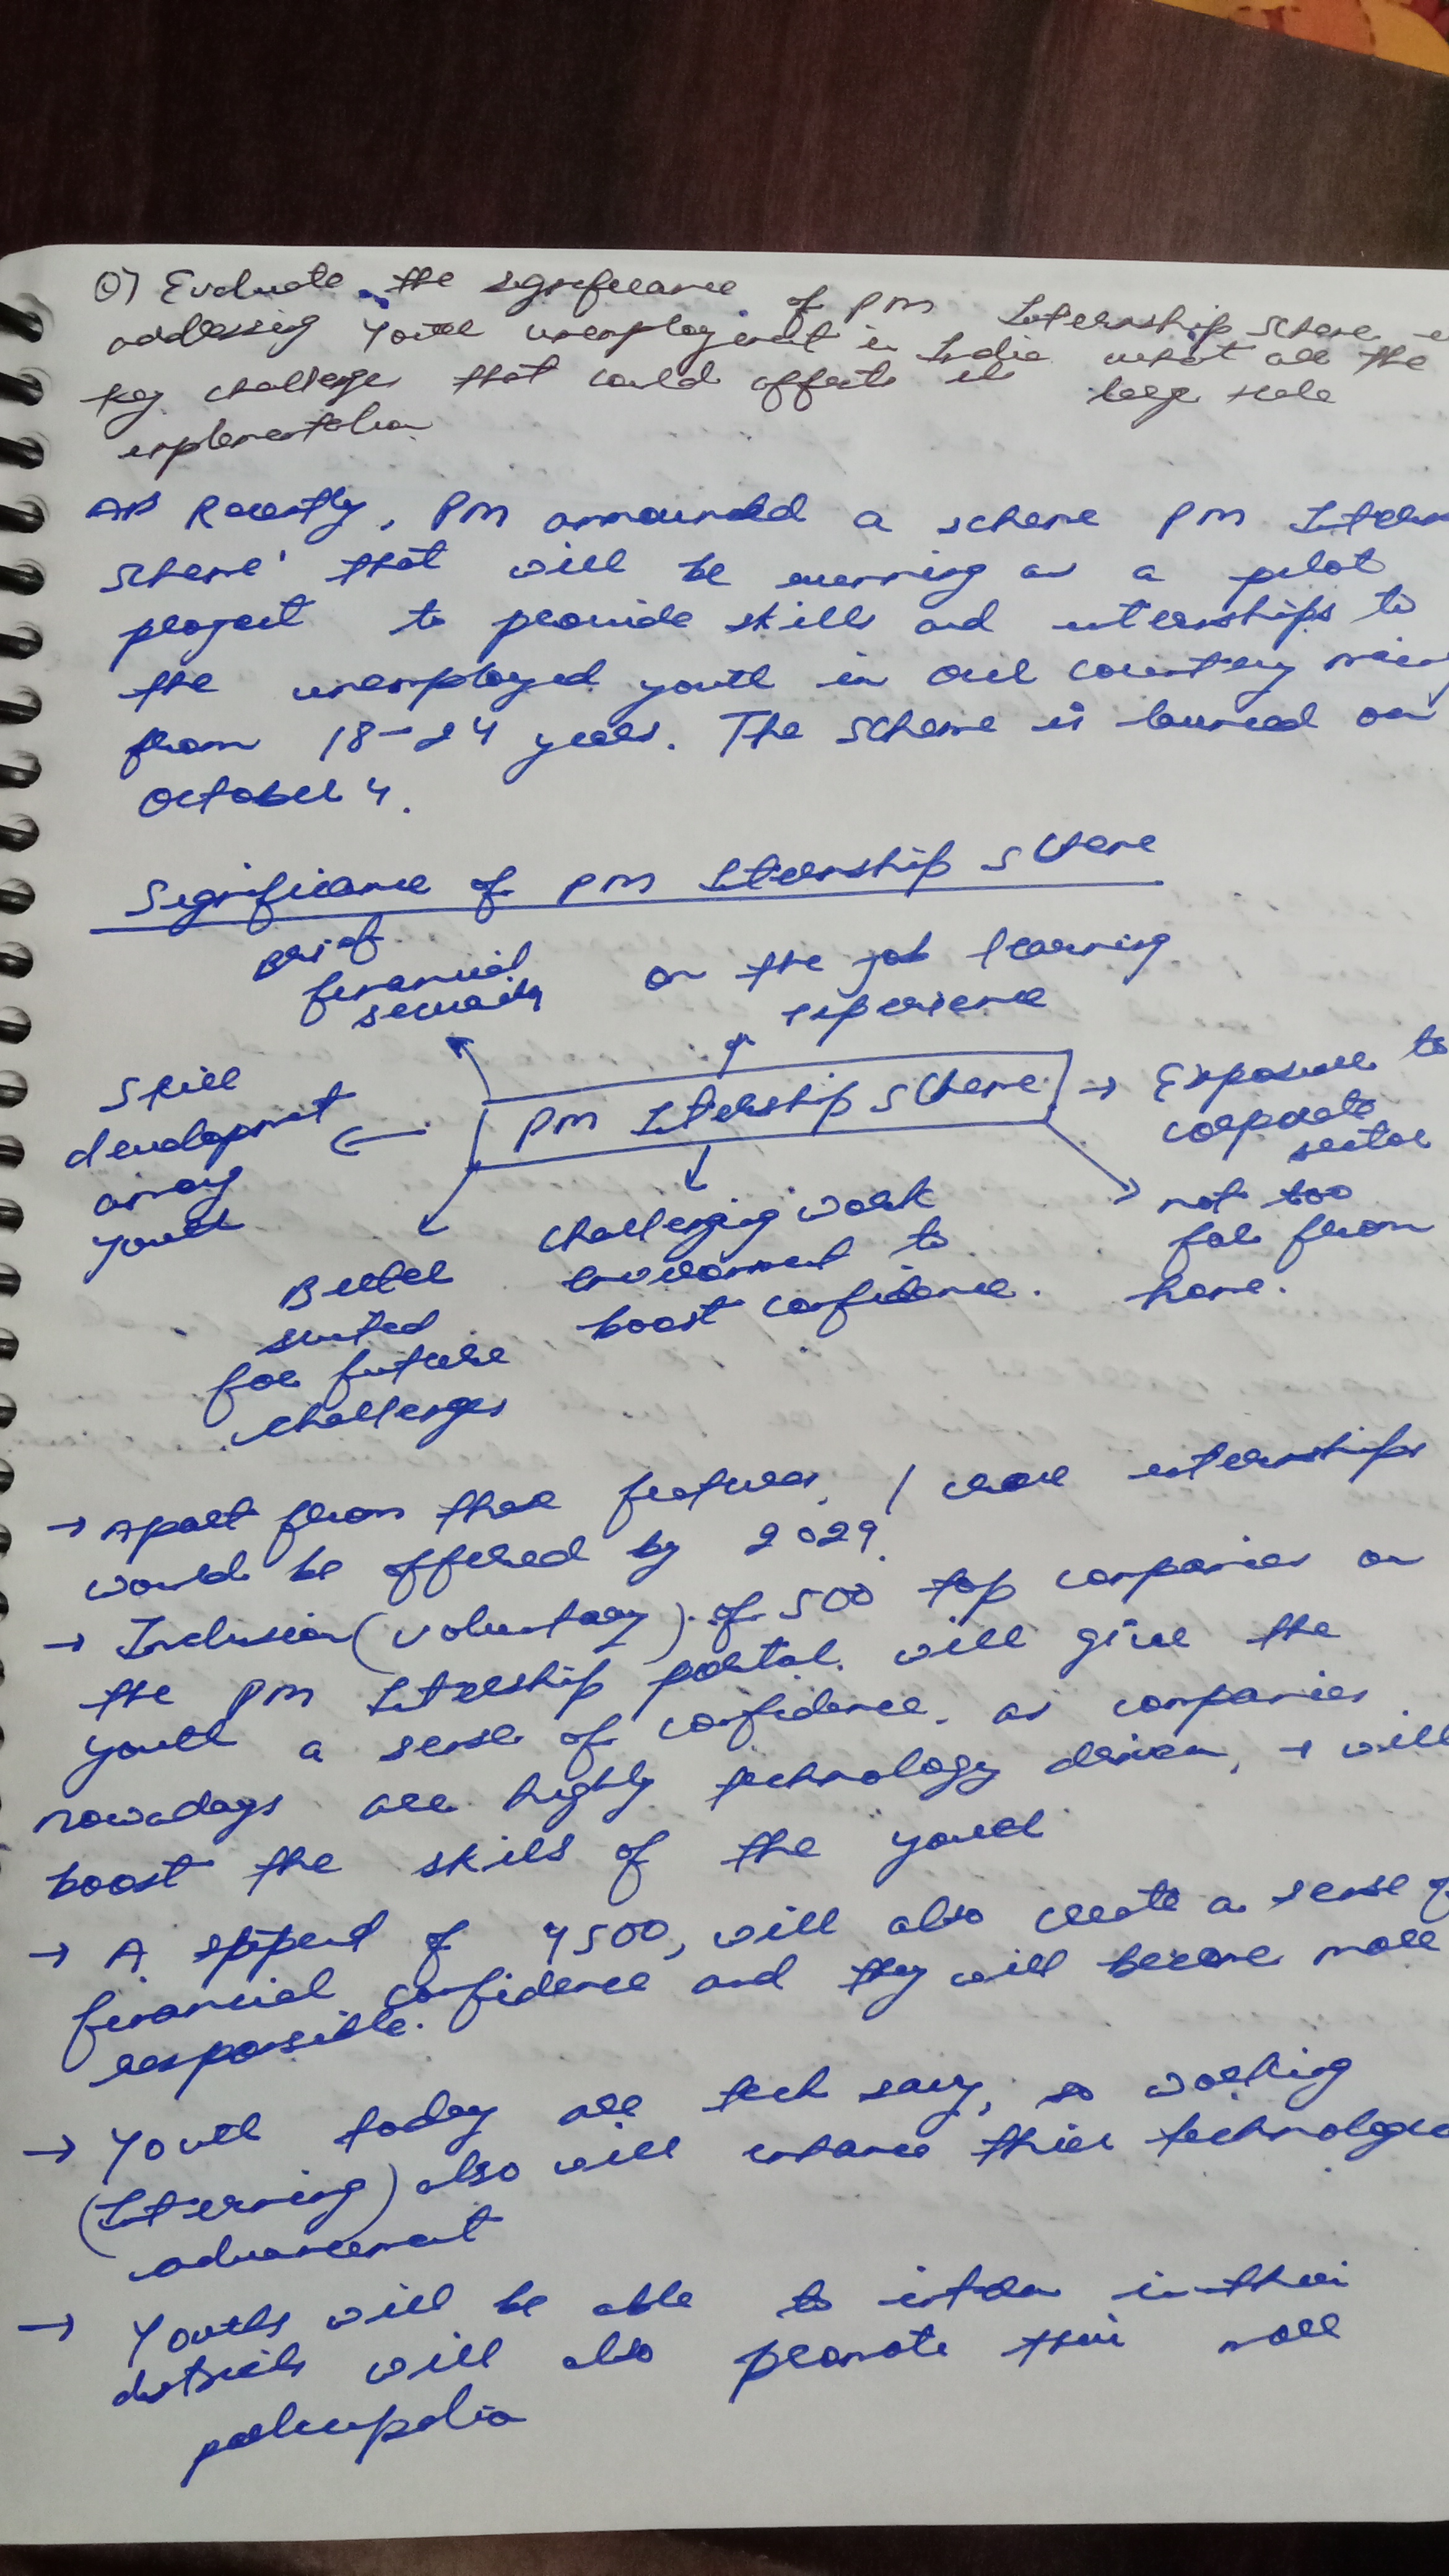 Q) Evaluate the significance of PM Internship Scheme
addressing Youth unemployment in India what are the
key challenges that could affects its large scale
implementation
Ans Recently, PM announced a scheme PM Intern
Scheme' that will be running as a pilot
project to provide skills and internships to
the unemployed youth in our country
from 18-24 years. The scheme is launced on
October 4.
Significance of PM Internship Scheme
Brief
financial
security
on the job learning
experience
Skill
development
among
youth
PM Internship Scheme
Exposure to
corporate
sector
not too
far from
home.
Better
suited
for future
challenges
challenging work
environment to
boost confidence.
→ Apart from these features, 1 crore internships
would be offered by 2029.
→ Inclusion (voluntary) of 500 top companies on
the PM Internship portal will give the
youth a sense of confidence, as companies
nowadays are highly technology driven, → will
boost the skills of the youth
→ A stipend of 4500, will also create a sense of
financial confidence and they will become more
responsible.
→ Youth today are tech savy, so working
(Interning) also will enhance their
advancement
→ Youths will be able to intern in their
districts will also promote their more